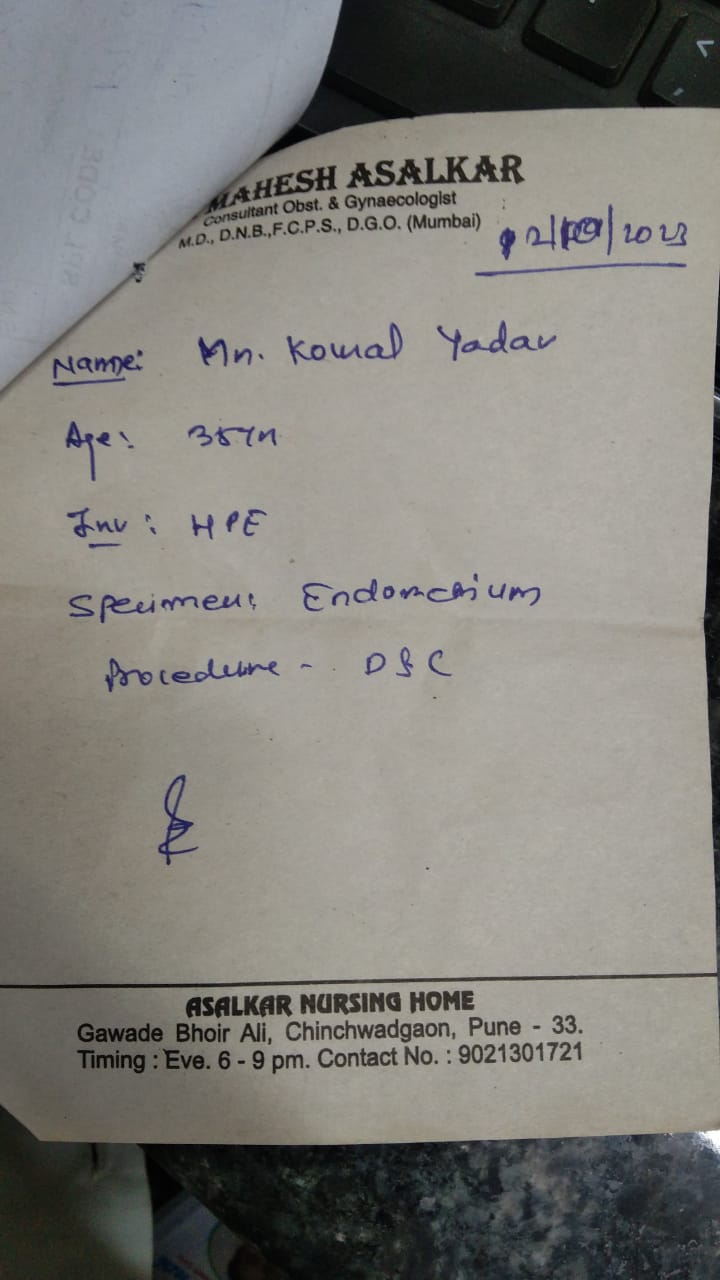 MAHESH ASALKAR
Consultant Obst. & Gynaecologist
M.D., D.N.B.,F.C.P.S., D.G.O. (Mumbai)
2023
Name: Mn. Komal Yadav
Age: 35yn
Inv : HPE
Specimen: Endometrium
Procedure - D & C
ASALKAR NURSING HOME
Gawade Bhoir Ali, Chinchwadgaon, Pune - 33.
Timing : Eve. 6 - 9 pm. Contact No. : 9021301721